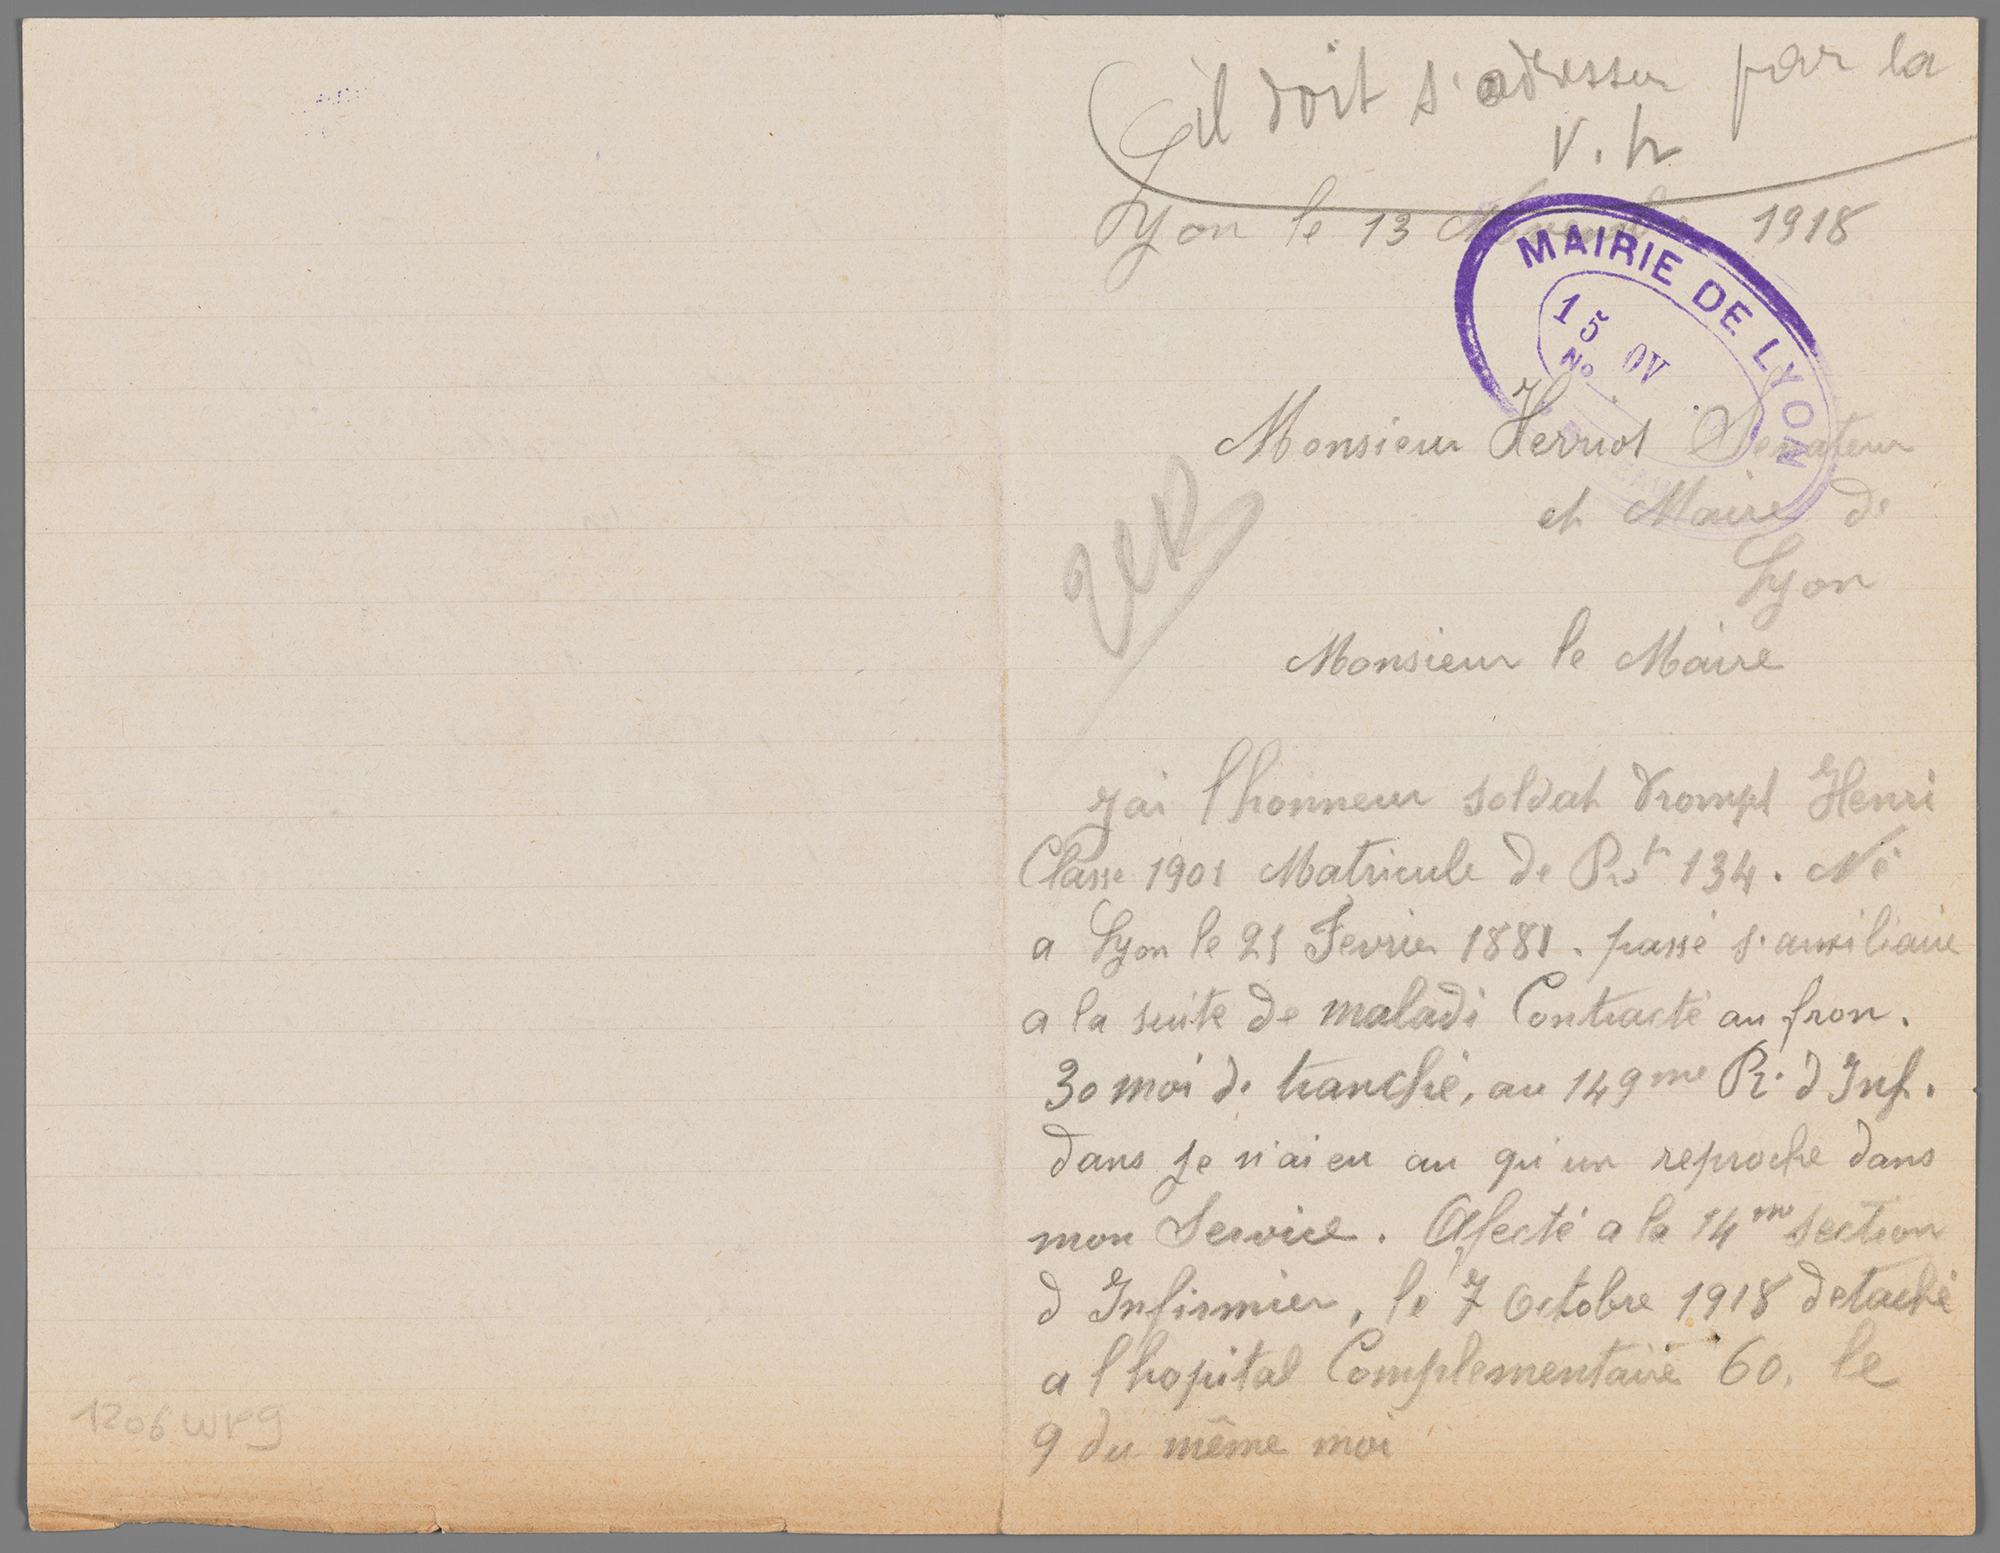 il doit s'adresser par la
V. h
Lyon le 13 Novembre 1918
MAIRIE DE LYON
15 OV
No
Monsieur Herriot Senateur
et Maire de
Lyon
Monsieur le Maire
J'ai l honneur soldat Trompt Henri
Classe 1901 Matricule de Rt 134. Né
a Lyon le 21 Fevrier 1881. passé s. auxiliaire
a la suite de maladi Contracté au fron.
30 moi de tranché, au 149me Ri. d Inf.
dans je n'ai eu au qu'un reproche dans
mon Service. Afecté a la 14me section
d Infirmier, le 7 Octobre 1918 detaché
a l hopital Complementaire 60. le
9 du même moi
1206WR9